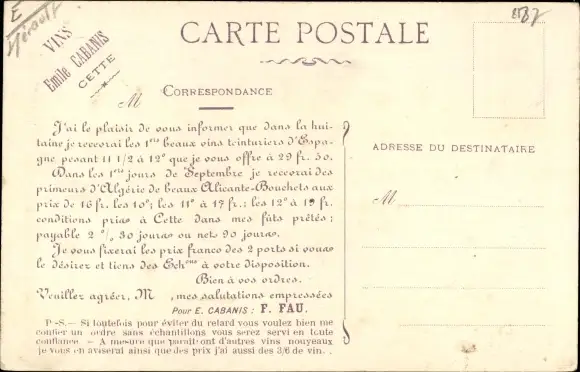 E
Hérault
VINS
Emile CABANIS
CETTE
CARTE POSTALE
M
CORRESPONDANCE
J'ai le plaisir de vous informer que dans la hui-
taine je recevrai les 1ers beaux vins teinturiers d'Espa-
gne pesant 11 1/2 à 12° que je vous offre à 29 fr. 50.
Dans les 1ers jours de Septembre je recevrai des
primeurs d'Algérie de beaux Alicante-Bouchets aux
prix de 16 fr. les 10°; les 11° à 17 fr.; les 12° à 19 fr.
conditions prises à Cette dans mes fûts prêtés;
payable 2 % 30 jours ou net 90 jours.
Je vous fixerai les prix franco des 2 ports si vous
le désirez et tiens des Échons à votre disposition.
Bien à vos ordres.
Veuillez agréer, M , mes salutations empressées
Pour E. CABANIS : F. FAU.
P.-S. — Si toutefois pour éviter du retard vous voulez bien me
confier un ordre sans échantillons vous serez servi en toute
confiance. — A mesure que paraîtront d'autres vins nouveaux
je vous en aviserai ainsi que des prix j'ai aussi des 3/6 de vin.
ADRESSE DU DESTINATAIRE
M